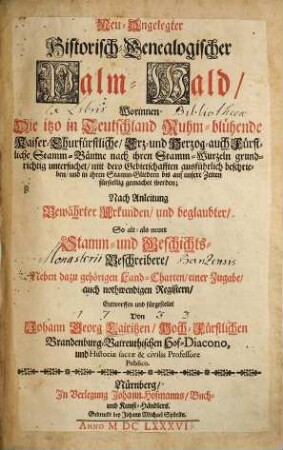 Neu-Angelegter
Historisch-Genealogischer
Palm-Wald/
Ex Libris Bibliothecæ
Worinnen
Die itzo in Teutschland Ruhm-blühende
Kaiser-Churfürstliche/ Ertz- und Hertzog- auch Fürst-
liche Stamm-Bäume nach ihren Stamm-Wurzeln grund-
richtig untersuchet/ mit dero Gebietschafften ausführlich beschrie-
ben/ und in ihren Stamm-Gliedern bis auf unsere Zeiten
fürstellig gemachet werden;
Nach Anleitung
Bewährter Urkunden/ und beglaubter/
So alt- als neuen
Stamm- und Geschichts-
Monasterii Banzensis
Beschreibere/
Neben dazu gehörigen Land-Charten/ einer Zugabe/
auch nothwendigen Registern/
Entworffen und fürgestellet
1733
Von
Johann Georg Layritzen/ Hoch-Fürstlichen
Brandenburg-Baireuthischen Hof-Diacono,
und Historiæ sacræ & civilis Professore
Publico.
Nürnberg/
In Verlegung Johann Hofmanns/ Buch-
und Kunst-Händlers.
Gedruckt bey Johann Michael Spörlin.
ANNO M DC LXXXVI.